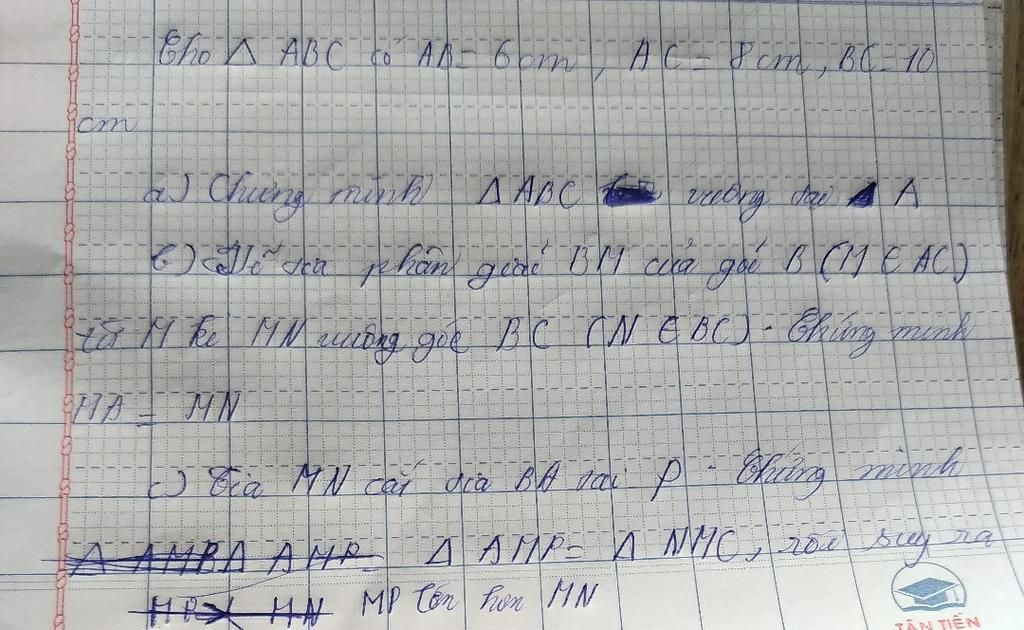 Cho △ ABC có AB = 6cm, AC = 8cm, BC = 10
cm
a) Chứng minh △ ABC vuông tại A
b) Vẽ tia phân giác BM của góc B (M ∈ AC)
từ M kẻ MN vuông góc BC (N ∈ BC). Chứng minh
MA = MN
c) Tia MN cắt tia BA tại P. Chứng minh
△ AMP = △ NMC, rồi suy ra
MP lớn hơn MN
TÂN TIẾN